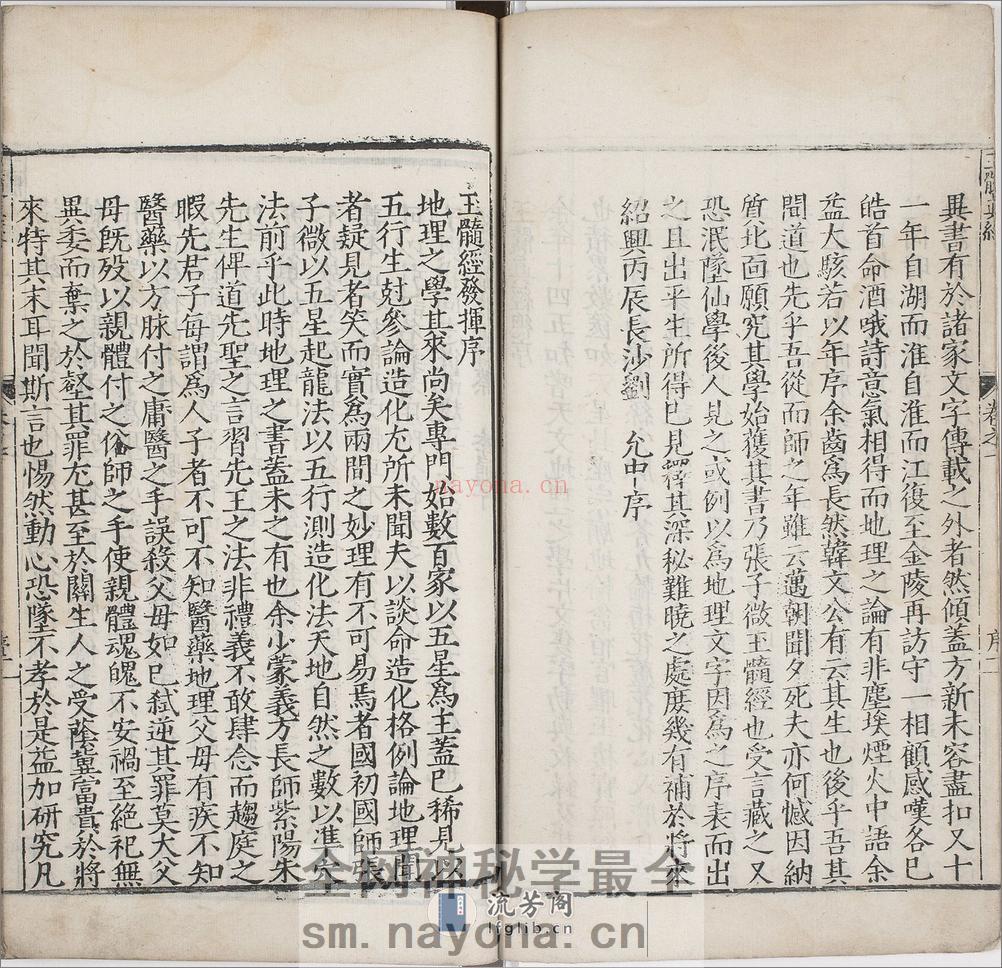 異書有於諸家文字傳載之外者然傾蓋方新未容盡扣又十
一年自湖而淮自淮而江復至金陵再訪守一相顧感嘆各已
皓首命酒哦詩意氣相得而地理之論有非塵埃煙火中語余
益大駭若以年序余齒為長然韓文公有云其生也後乎吾其
聞道也先乎吾從而師之年雖云邁朝聞夕死夫亦何憾因納
質北面願究其學始獲其書乃張子微玉髓經也受言藏之又
恐泯墜仙學後人見之或例以為地理文字因為之序表而出
之且出平生所得已見釋其深秘難曉之處庶幾有補於將來
紹興丙辰長沙劉 允中序
玉髓經發揮序
地理之學其來尚矣專門始數百家以五星為主蓋已稀見以
五行生尅參論造化尤所未聞夫以談命造化格例論地理聞
者疑見者笑而實為兩間之妙理有不可易焉者國初國師張
子微以五星起龍法以五行測造化法天地自然之數以準穴
法前乎此時地理之書蓋未之有也余少蒙義方長師紫陽朱
先生俾道先聖之言習先王之法非禮義不敢肆念而趨庭之
暇先君子每謂為人子者不可不知醫藥地理父母有疾不知
醫藥以方脉付之庸醫之手誤殺父母如己弒逆其罪莫大父
母既歿以親體付之俗師之手使親體魂魄不安禍至絕祀無
異委而棄之於壑其罪尤甚至於關生人之受蔭冀富貴於將
來特其末耳聞斯言也惕然動心恐墜不孝於是益加研究凡
玉髓真經
卷之一
序二
nayona.cn
全网神秘学最全
流芳阁
lfglib.cn
sm.nayona.cn